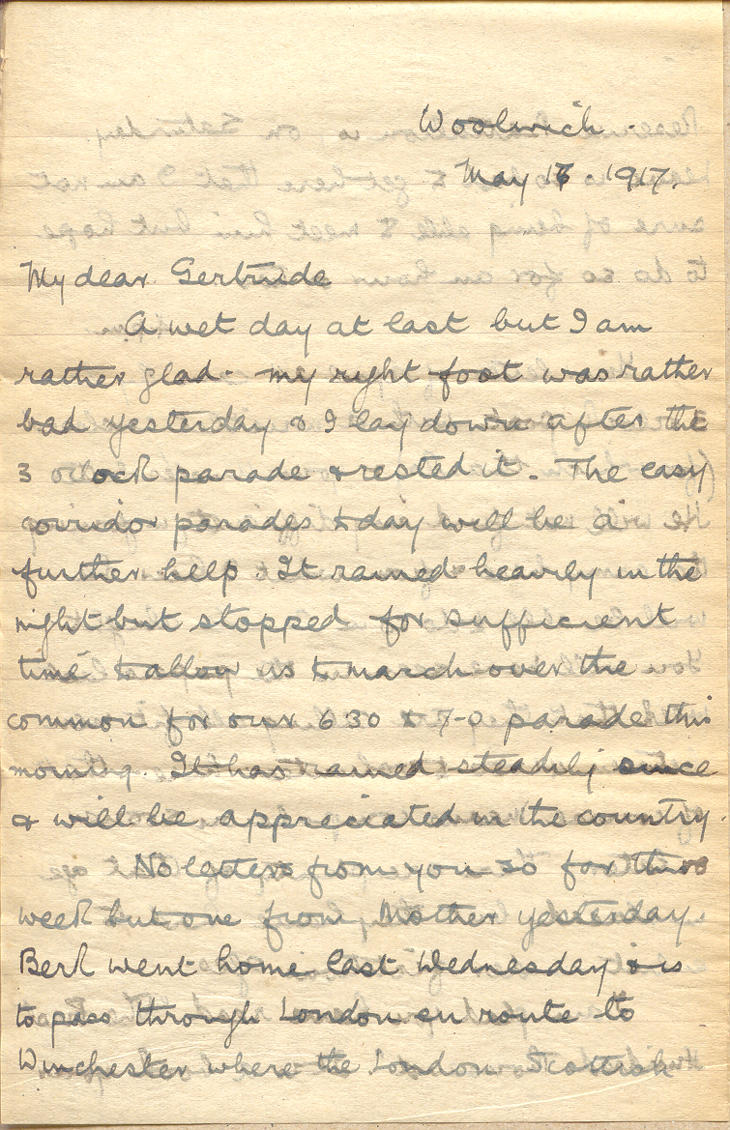 Woolwich.
May 16 1917.
My dear Gertrude
A wet day at last but I am
rather glad - my right foot was rather
bad yesterday & I lay down after the
3 o'lock parade & rested it. The easy
corridor parades today will be a
further help. It rained heavily in the
night but stopped for sufficient
time to allow us to march over the
common for our 6 30 to 7-0 parade this
morning. It has rained steadily since
& will be appreciated in the country.
No letters from you so far this
week but one from Mother yesterday.
Bert went home last Wednesday & is
to pass through London en route to
Winchester where the London Scottish